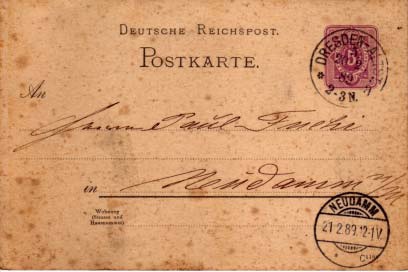 DEUTSCHE REICHSPOST.
POSTKARTE.
5
DRESDEN-A
2-3N.
An
Herrn Paul Fuchs
in Neudamm
Wohnung
(Strasse und
Hausnummer)
NEUDAMM
21 2.89.12-1V.